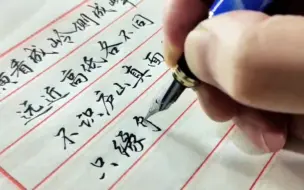 横看成岭侧成峰
远近高低各不同
不识庐山真面
只缘身